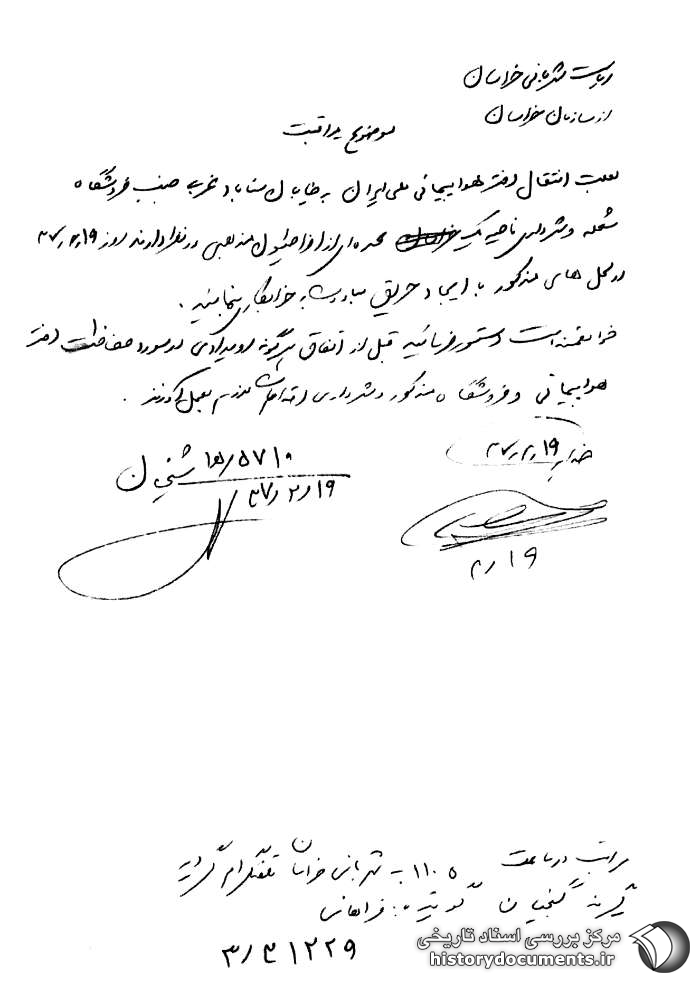 ریاست شهربانی خراسان
از سازمان خراسان
موضوع مراقبت
بعلت انتقال دفتر هواپیمائی ملی ایران به خیابان سناباد غربی جنب فروشگاه
شعله و شهرداری ناحیه یک عده‌ای از افراطیون مذهبی در نظر دارند روز ۳۷٫۲٫۱۹
در محل های مذکور با ایجاد حریق مبادرت به خرابکاری نمایند .
خواهشمند است دستور فرمائید قبل از اتفاق هرگونه رویدادی در مورد حفاظت دفتر
هواپیمائی و فروشگاه مذکور و شهرداری اقدامات لازم بعمل آورند .
۳۷٫۲٫۱۹
۱۵/۵۷۱۰
۳۷٫۲٫۱۹
۲٫۱۹
مراتب در ساعت ۱۱۰۵ به شهربانی خراسان تلفنگرام گردید
گیرنده گنجیان گوینده : فراهانی
۳٫۳۱۲۲۹
مرکز بررسی اسناد تاریخی
historydocuments.ir